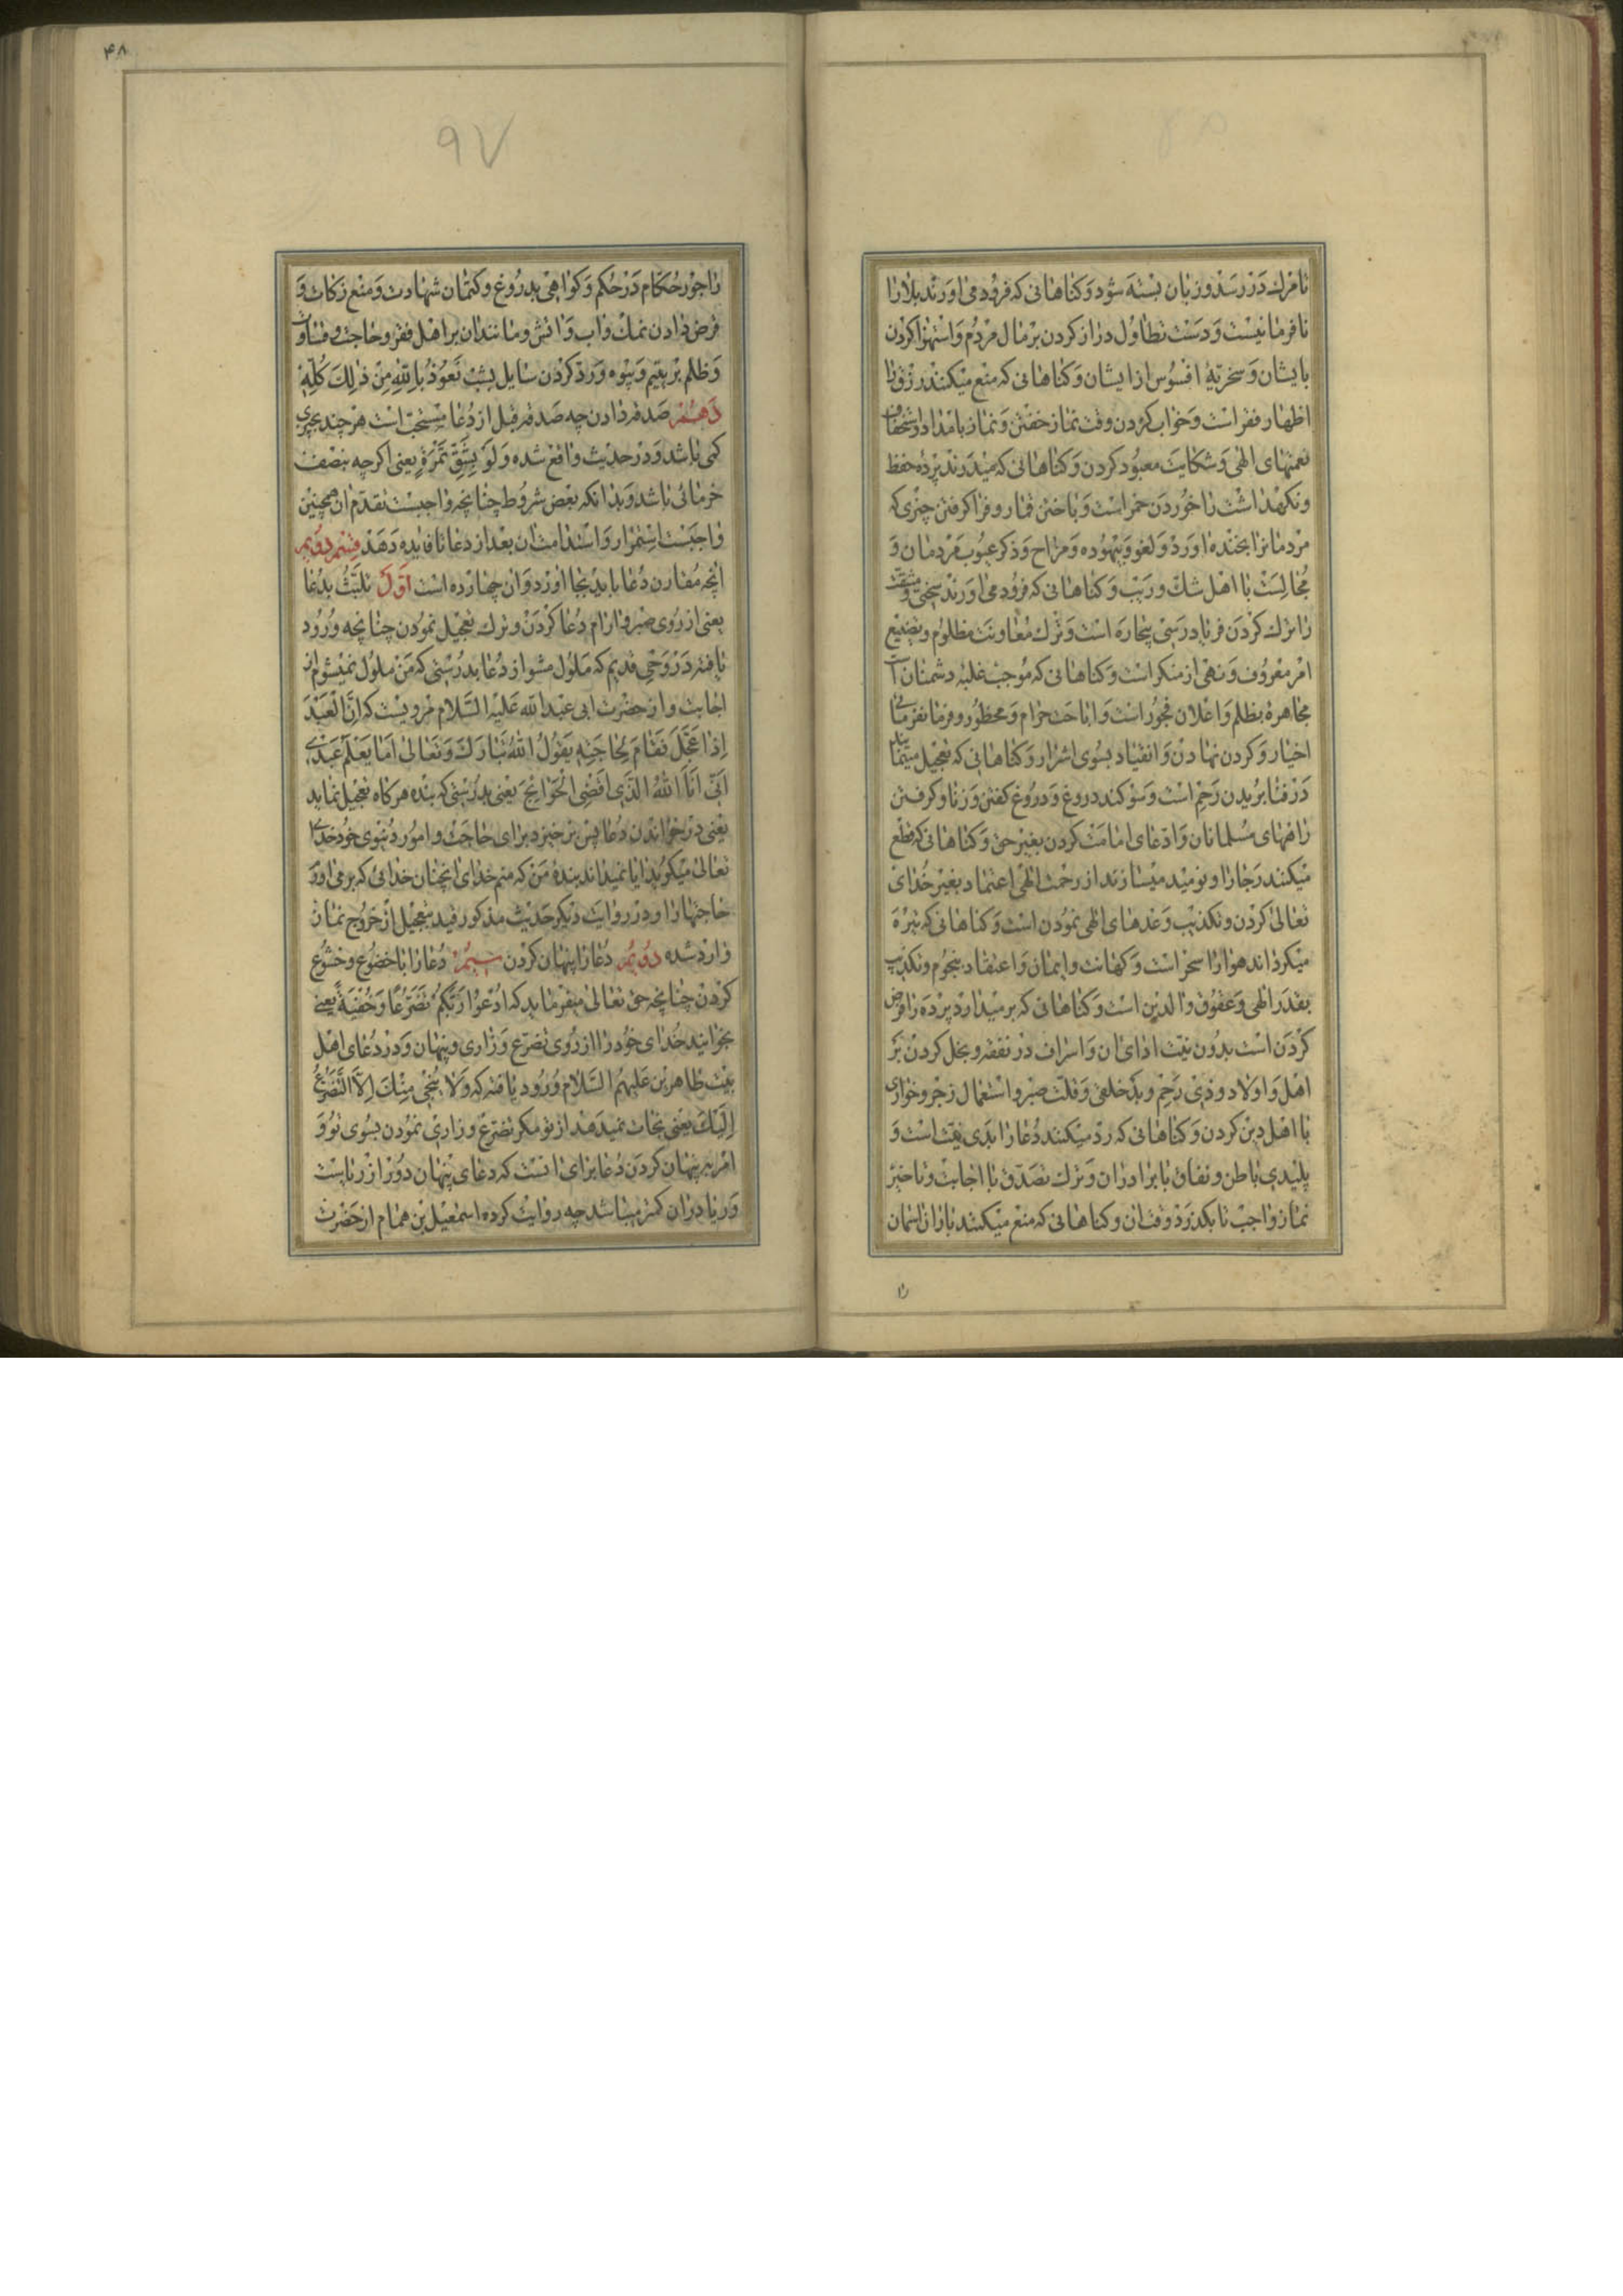 تا مرك در رسد و زبان بسته شود و كناهانى كه فرود مى اورند بلا را
نا فرمانيست و دست تطاول دراز كردن بر مال مردم و استهزا كردن
با يشان و سخريه افسوس از ايشان و كناهانى كه منع ميكنند رزق را
اظهار فقر است و خواب كردن وقت نماز خفتن و نماز بامداد و استخفاف
نعمتهاى الهى و شكايت معبود كردن و كناهانى كه ميدرند پرده حفظ
و نكهداشت را خوردن خمر است و باختن قمار و فرا كرفتن چيزى كه
مردمانرا بخنده اورد و لغو و بيهوده و مزاح و ذكر عيوب مردمان و
مجالست با اهل شك و ريب و كناهانى كه فرود مى اورند سختى و مشقت
را ترك كردن فرياد رسى بيچاره است و ترك معاونت مظلوم و تضييع
امر معروف و نهى از منكر است و كناهانى كه موجب غلبه دشمنان است
مجاهره بظلم و اعلان فجور است و اباحت حرام و محظور و فرمانفرمائى
اخيار و كردن نهادن و انقياد بسوى اشرار و كناهانى كه تعجيل مينمايند
در فنا بريدن رحم است و سوكند دروغ و دروغ كفتن و زنا و كرفتن
راههاى مسلمانان و ادعاى امامت كردن بغير حق و كناهانى كه قطع
ميكنند رجا را و نوميد ميسازند از رحمت الهى اعتماد بغير خداى
تعالى كردن و تكذيب وعدهاى الهى نمودن است و كناهانى كه تيره
ميكرداند هوا را سحر است و كهانت و ايمان و اعتقاد بنجوم و تكذيب
بقدر الهى و عقوق والدين است و كناهانى كه بر ميدارد پرده را قرض
كردن است بدون نيت اداى ان و اسراف در نفقه و بخل كردن بر
اهل و اولاد و ذى رحم و بد خلقى و قلت صبر و استعمال زجر و خوارى
با اهل دين كردن و كناهانى كه رد ميكنند دعا را بدى نيت است و
پليدى باطن و نفاق با برادران و ترك تصدق با اجابت و تاخير
نماز واجب تا بكذرد وقت ان و كناهانى كه منع ميكنند باران اسمان
را
۴۸
۹۷
را جور حكام در حكم و كواهى بدروغ و كتمان شهادت و منع زكات و
قرض دادن نمك و اب و اتش و مانند ان بر اهل فقر و حاجت و قساوت
و ظلم بر يتيم و بيوه و رد كردن سايل بشب نعوذ بالله من ذلك كله
دهم صدقه دادن چه صدقه قبل از دعا مستحب است هر چند بچيزى
كمى باشد و در حديث واقع شده ولو بشق تمرة يعنى اكر چه بنصف
خرمائى باشد و بدانكه بعض شروط چنانچه واجبست تقدم ان همچنين
واجبست استمرار و استدامت ان بعد از دعا تا فايده دهد قسم دويم
انچه مقارن دعا بايد بجا اورد و ان چهارده است اول تلبث بدعا
يعنى از روى صبر و ارام دعا كردن و ترك تعجيل نمودن چنانچه ورود
يافته در وحى قديم كه ملول مشو از دعا بدرستى كه من ملول نميشوم از
اجابت و از حضرت ابى عبد الله عليه السلام مرويست كه ان العبد
اذا عجل فقام لحاجته يقول الله تبارك و تعالى اما يعلم عبدى
انى انا الله الذى اقضى الحوائج يعنى بدرستى كه بنده هركاه تعجيل نمايد
يعنى در خواندن دعا پس برخيزد براى حاجت و امور دنيوى خود خداى
تعالى ميكويد ايا نميداند بنده من كه منم خداى انچنان خدائى كه بر مى اورد
حاجتها را و در روايت ديكر حديث مذكور قيد تعجيل از خروج نمان
وارد شده دويم دعا را پنهان كردن سيم دعا را با خضوع و خشوع
كردن چنانچه حق تعالى ميفرمايد كه ادعوا ربكم تضرعا و خفية يعنى
بخوانيد خداى خود را از روى تضرع و زارى و پنهان و در دعاى اهل
بيت طاهرين عليهم السلام ورود يافته كه ولا ينجى منك الا التضرع
اليك يعنى نجات نميدهد از تو مكر تضرع و زارى نمودن بسوى تو و
امر به پنهان كردن دعا براى انست كه دعاى پنهان دور از ريا است
و ريا در ان كمتر ميباشد چه روايت كرده اسمعيل بن همام از حضرت